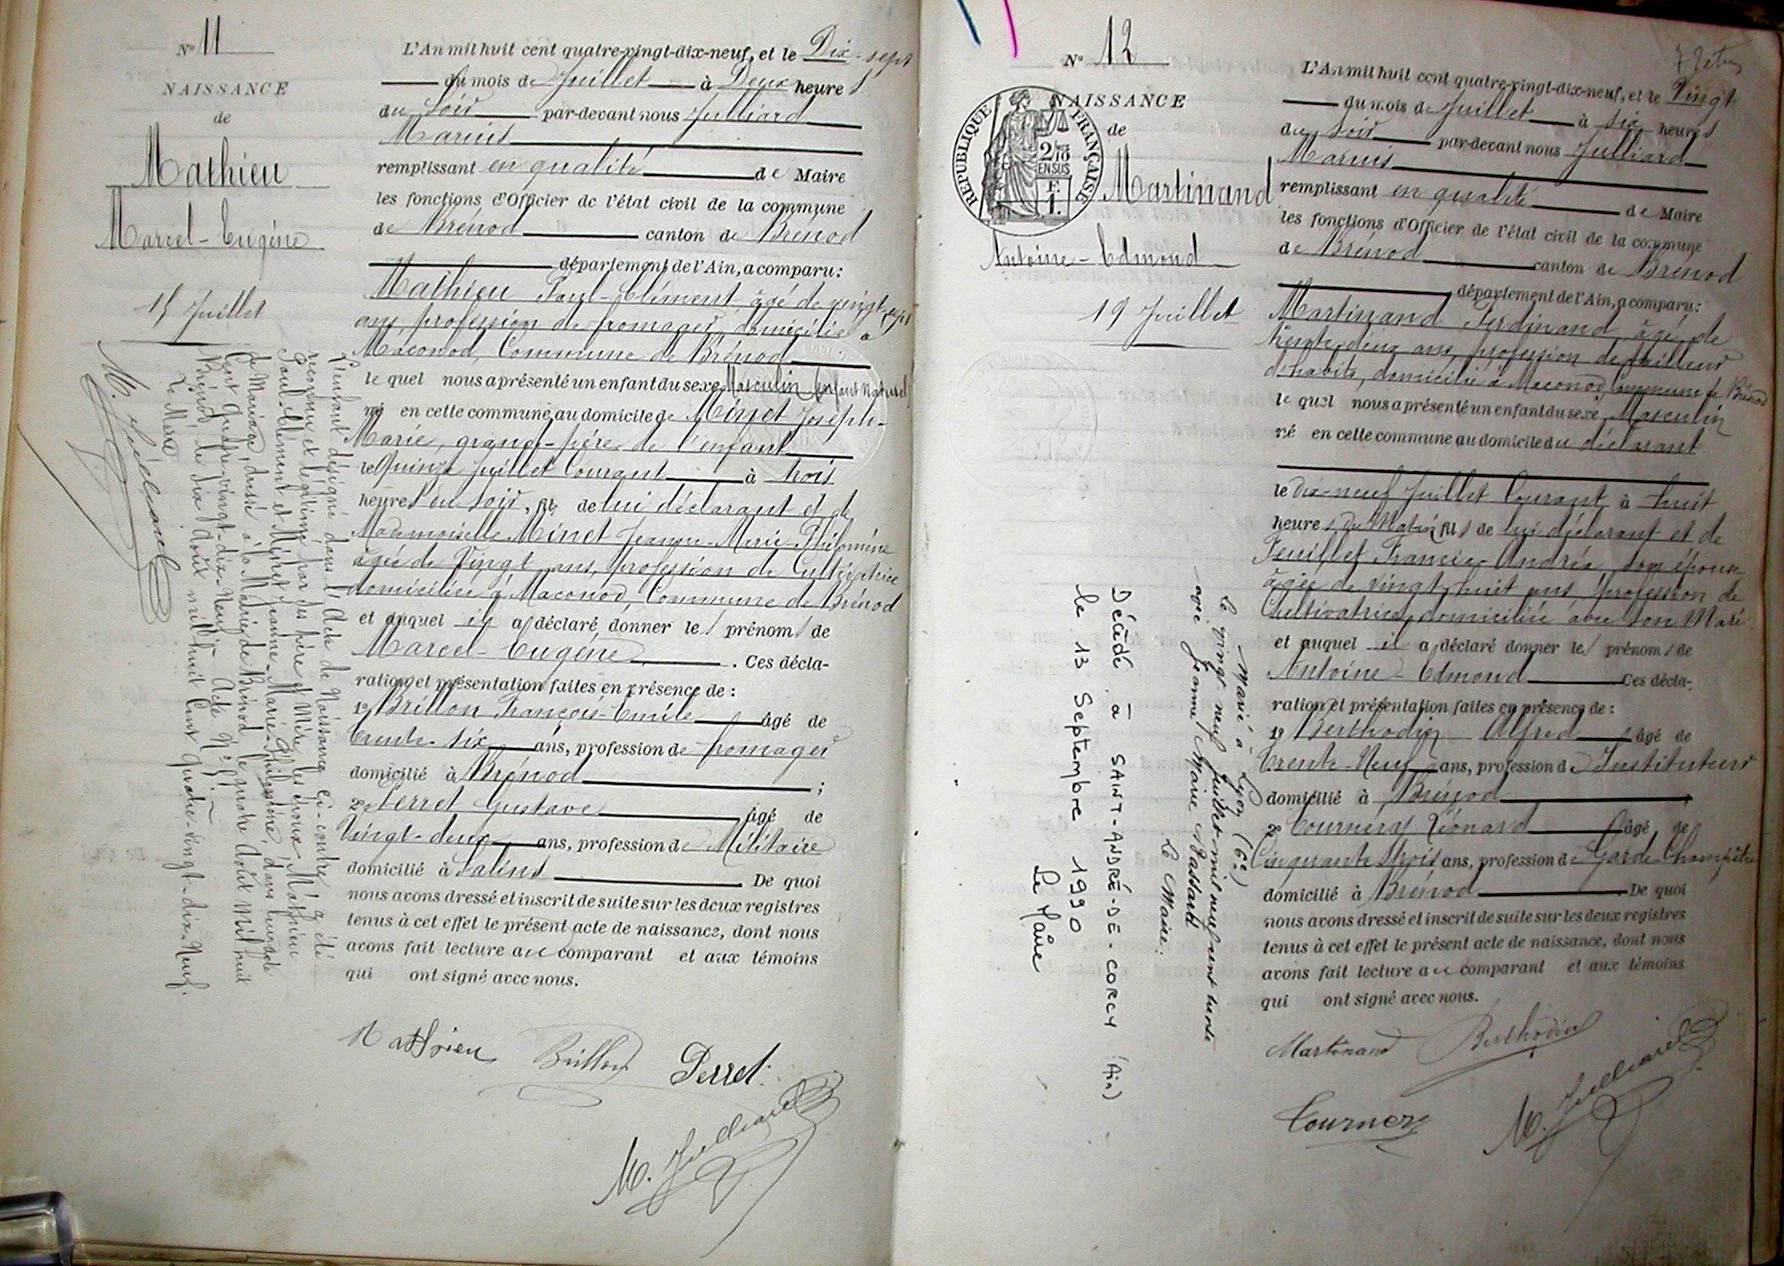 N° 11
NAISSANCE
de
Mathieu
Marcel-Eugène
15 Juillet
L'enfant désigné dans l'Acte de Naissance ci-contre, a été
reconnu et légitimé par ses père et Mère, les époux, Mathieu
Paul-Clément et Minet Jeanne-Marie-Philomène, dans leur acte
de Mariage, dressé à la Mairie de Brénod, le quatre Août Mil huit
Cent quatre-vingt-dix-Neuf. Acte N°
Brénod, le six Août mil huit Cent quatre-vingt-dix-Neuf.
Le Maire
M. Julliard
L'An mil huit cent quatre-vingt-dix-neuf, et le Dix-sept
du mois de Juillet à Deux heures
du Soir par-devant nous Julliard
Marius
remplissant en qualité de Maire
les fonctions d'Officier de l'état civil de la commune
de Brénod canton de Brénod
département de l'Ain, a comparu:
Mathieu Paul-Clément, âgé de vingt-sept
ans, profession de fromager, domicilié à
Maconod, Commune de Brénod
le quel nous a présenté un enfant du sexe Masculin Enfant Naturel
né en cette commune au domicile de Minet Joseph-
Marie, grand-père de l'enfant
le Quinze Juillet Courant à trois
heures du Soir, fils de lui déclarant et de
Mademoiselle Minet Jeanne-Marie-Philomène
âgée de Vingt ans, profession de Cultivatrice
domiciliée à Maconod, Commune de Brénod
et auquel il a déclaré donner les prénoms de
Marcel-Eugène . Ces décla-
ration et présentation faites en présence de :
1° Brillon François-Emile âgé de
trente-six ans, profession de fromager
domicilié à Brénod ;
2° Perret Gustave âgé de
Vingt-deux ans, profession de Militaire
domicilié à Salins De quoi
nous avons dressé et inscrit de suite sur les deux registres
tenus à cet effet le présent acte de naissance, dont nous
avons fait lecture au comparant et aux témoins
qui ont signé avec nous.
Mathieu Brillon Perret
M. Julliard
N° 12
NAISSANCE
de
RÉPUBLIQUE FRANÇAISE
2/10
EN SUS
F.
1.
Martinand
Antoine-Edmond
19 Juillet
Marié à Lyon (6e)
le vingt neuf Juillet mil neuf cent trente
avec Jeanne Marie
Le Maire.
Décédé à SAINT-ANDRÉ-DE-CORCY (Ain)
le 13 Septembre 1990
Le Maire
L'An mil huit cent quatre-vingt-dix-neuf, et le Vingt
du mois de Juillet à six heures
du Soir par-devant nous Julliard
Marius
remplissant en qualité de Maire
les fonctions d'Officier de l'état civil de la commune
de Brénod canton de Brénod
département de l'Ain, a comparu:
Martinand Ferdinand, âgé de
trente-deux ans, profession de tailleur
d'habits, domicilié à Maconod, commune de Brénod
le quel nous a présenté un enfant du sexe Masculin
né en cette commune au domicile du déclarant
le dix-neuf Juillet Courant, à huit
heures du Matin fils de lui déclarant et de
Feuillet Francia Andréa, son épouse
âgée de vingt-huit ans, profession de
Cultivatrice, domiciliée avec son Mari
et auquel il a déclaré donner les prénoms de
Antoine-Edmond Ces décla-
ration et présentation faites en présence de :
1° Berthodin Alfred âgé de
trente-Neuf ans, profession d'Instituteur
domicilié à Brénod
2° Tournery Léonard âgé de
Cinquante trois ans, profession de Garde-Champêtre
domicilié à Brénod De quoi
nous avons dressé et inscrit de suite sur les deux registres
tenus à cet effet le présent acte de naissance, dont nous
avons fait lecture au comparant et aux témoins
qui ont signé avec nous.
Martinand Berthodin
Tournery M. Julliard